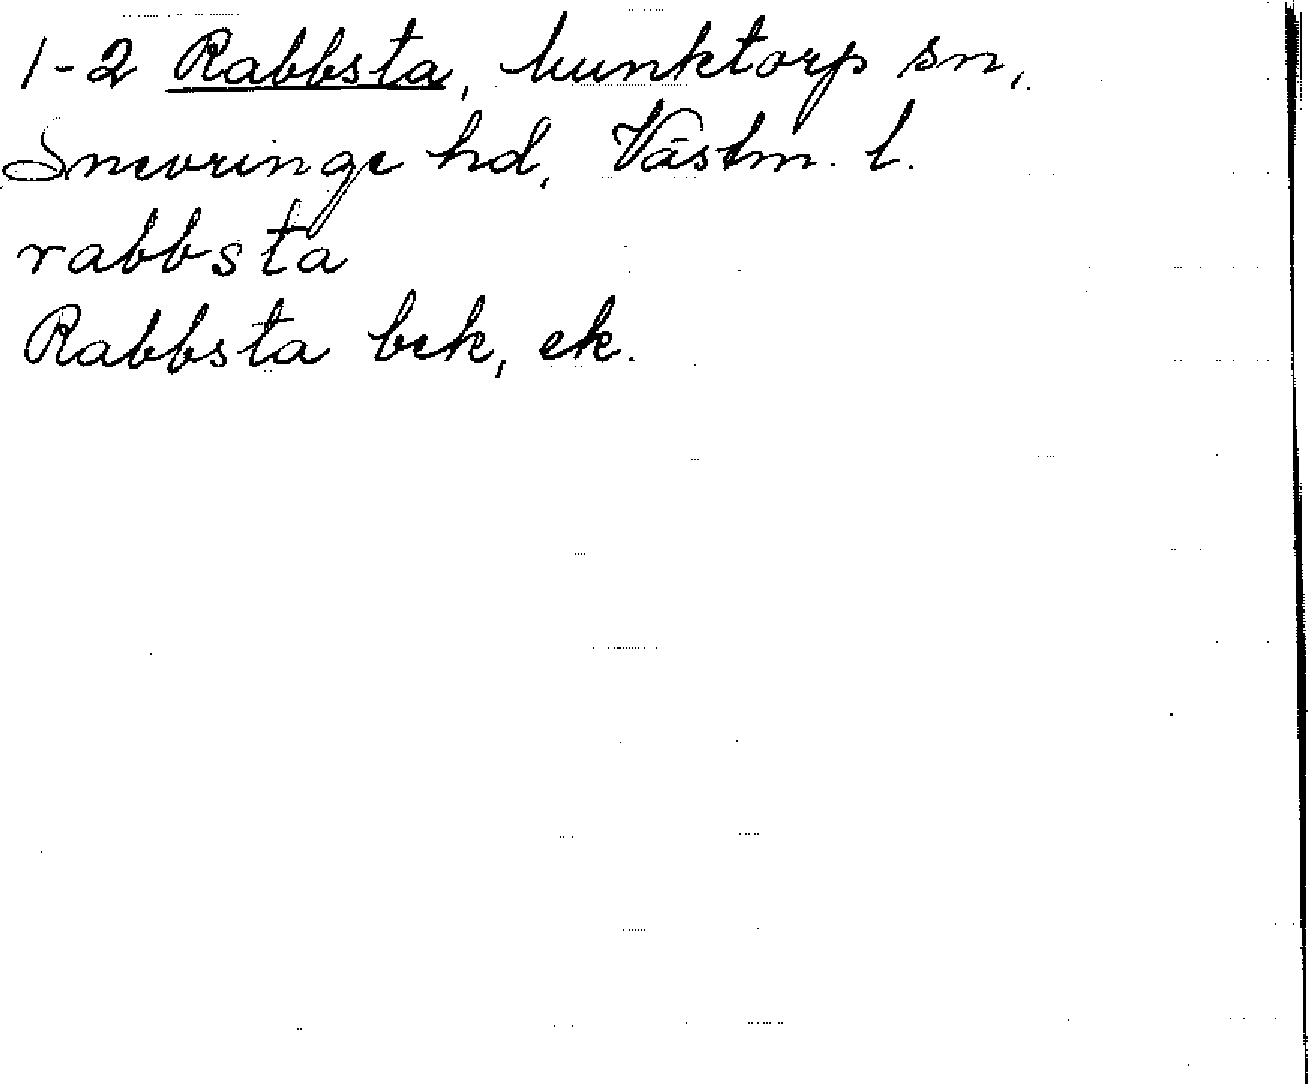 1-2 Rabbsta, Munktorp sn,
Snevringe hd, Västm. l.
rabbsta
Rabbsta bek, ek.